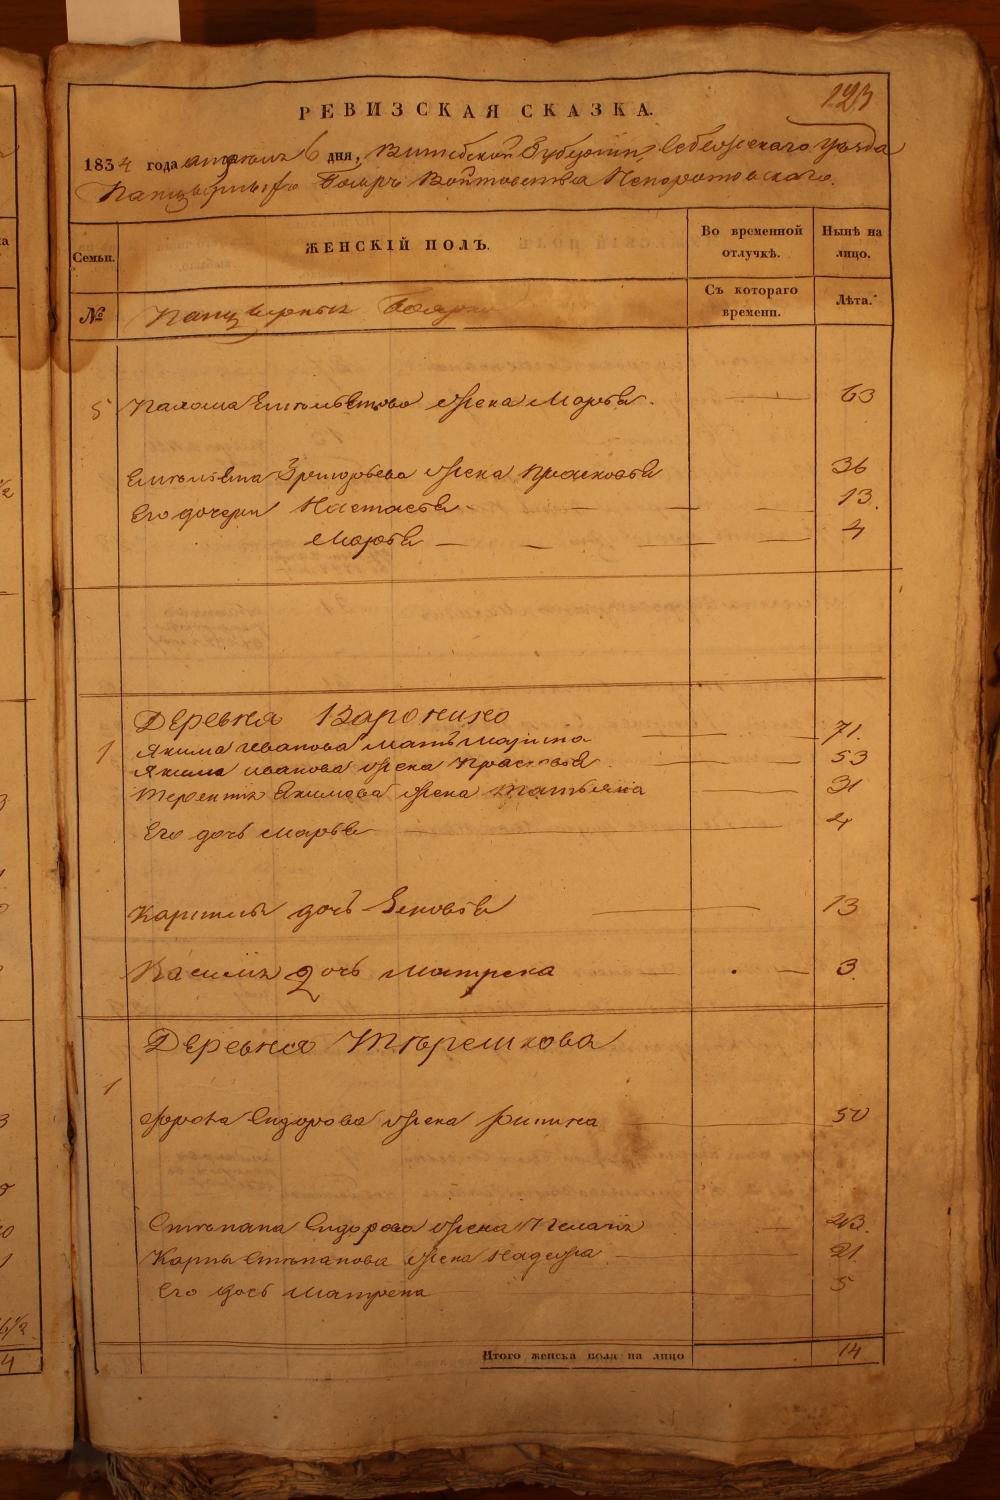 123
РЕВИЗСКАЯ СКАЗКА.
1834 года апреля 6 дня, Витебской Губернии, Себежскаго уезда
Панцырныхъ Бояръ Войтовства Непоротовскаго.
Семьи. ЖЕНСКІЙ ПОЛЪ. Во временной отлучкѣ. Нынѣ на лицо.
№ Панцырныхъ Бояръ Съ котораго времени. Лѣта.
5 жена Марья. 63
Григорьева жена Прасковья 36
Его дочери Настасья 13.
Марья 4
Деревня Варонино
1 Якима Иванова мать Марина 71.
Якима Иванова жена Прасковья 53
Терентия Якимова жена Татьяна 31
Его дочь Марья 4
дочь Зеновья 13
Василия дочь Матрена 3.
Деревня
1
Сидорова жена 50
Степана Сидорова жена Пелагия 43.
Карпы Степанова жена Надежа 21.
Его дочь Матрена 5
Итого женска пола на лицо 14